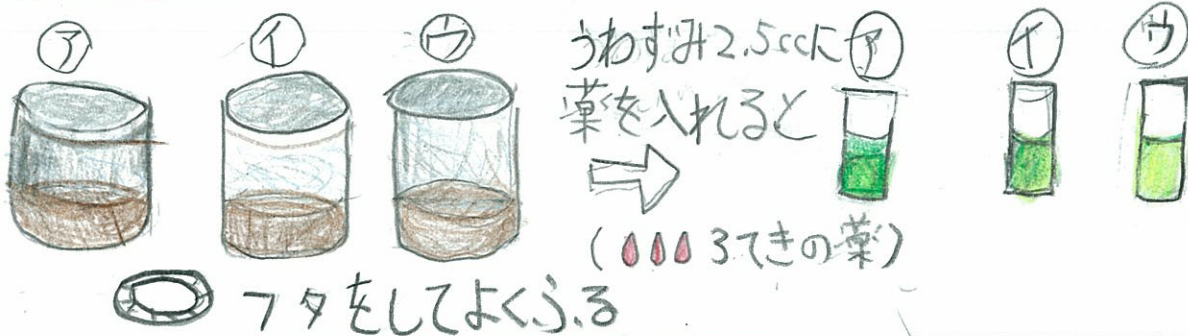 ア イ ウ
うわずみ2.5ccに
薬を入れると
(3てきの薬)
フタをしてよくふる
ア イ ウ